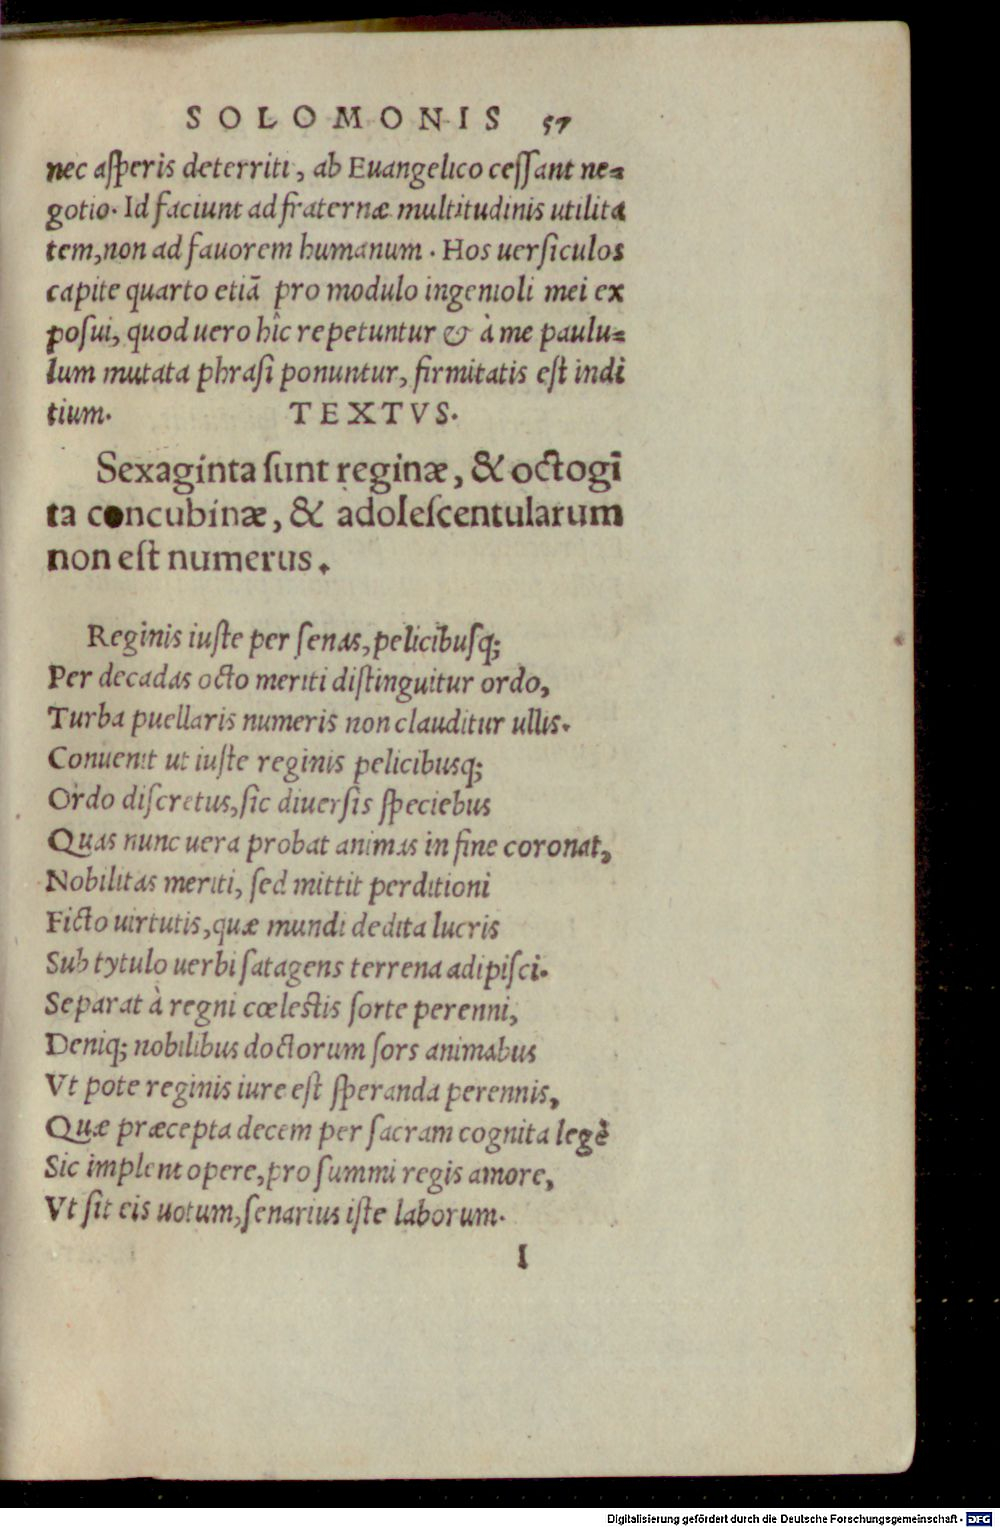 SOLOMONIS 57
nec asperis deterriti, ab Euangelico cessant ne=
gotio. Id faciunt ad fraternæ multitudinis utilita
tem, non ad fauorem humanum. Hos uersiculos
capite quarto etiã pro modulo ingenioli mei ex
posui, quod uero hîc repetuntur & à me paulu=
lum mutata phrasi ponuntur, firmitatis est indi
tium. TEXTVS.
Sexaginta sunt reginæ, & octogĩ
ta concubinæ, & adolescentularum
non est numerus.
Reginis iuste per senas, pelicibusq;
Per decadas octo meriti distinguitur ordo,
Turba puellaris numeris non clauditur ullis.
Conuenit ut iuste reginis pelicibusq;
Ordo discretus, sic diuersis speciebus
Quas nunc uera probat animas in fine coronat,
Nobilitas meriti, sed mittit perditioni
Ficto uirtutis, quæ mundi dedita lucris
Sub tytulo uerbi satagens terrena adipisci.
Separat à regni cœlestis sorte perenni,
Deniq; nobilibus doctorum sors animabus
Vt pote reginis iure est speranda perennis,
Quæ præcepta decem per sacram cognita legẽ
Sic implent opere, pro summi regis amore,
Vt sit eis uotum, senarius iste laborum.
I
Digitalisierung gefördert durch die Deutsche Forschungsgemeinschaft - DFG